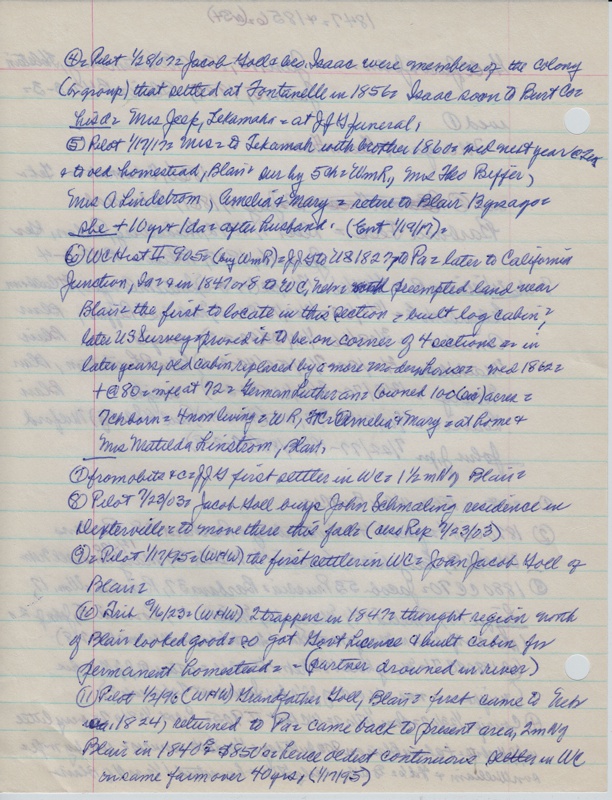 ④= Pilot 1/28/07= Jacob Goll & bro. Isaac were members of the colony
(or group) that settled at Fontanelle in 1856= Isaac soon to Burt Co=
his d= Mrs Jeep, Tekamah= at JJG funeral,
⑤ Pilot 1/17/17= Mrs= to Tekamah with brother 1860= wed next year
& to ved homestead, Blair= sur by 5 ch= Wm R, Mrs Theo Pfeffer,
Mrs A Lindstrom, Amelia & Mary= retire to Blair 13 yrs ago=
she + 10 yr & 1 da= after husband. (Ent 1/19/17)=
⑥ WC Hist II 905= (by Wm R)= JJG to US 1827 to Pa= later to California
Junction, Ia= & in 1847 or 8 to WC, Neb= preempted land near
Blair= the first to locate in this section= built log cabin=
later US Survey proved it to be on corner of 4 sections= in
later years, old cabin replaced by a more modern house= wed 1862=
+ @ 80= wife at 72= German Lutheran= (owned 100 (ac) acres=
7 ch born= 4 now living= WR, Amelia & Mary= at home &
Mrs Matilda Linstrom, Blair,
⑦ from obits &c= JJG first settler in WC= 1 1/2 m N of Blair=
⑧ Pilot 7/23/03= Jacob Goll buys John Schmaling residence in
Dexterville= to move there this fall= (also Rep 7/23/03)
⑨= Pilot 1/17/95= (WHW) the first settler in WC= John Jacob Goll of
Blair=
⑩ Trib 9/6/23= (WHW) 2 trappers in 1847= thought region north
of Blair looked good= so got Govt Licence & built cabin for
permanent homestead= - (partner drowned in river)
⑪ Pilot 1/2/96 (WHW) Grandfather Goll, Blair= first came to Neb
1824, returned to Pa= came back to present area, 2 m N of
Blair in 1840? = hence oldest continuous settler in WC
on same farm over 40 yrs, (1/17/95)